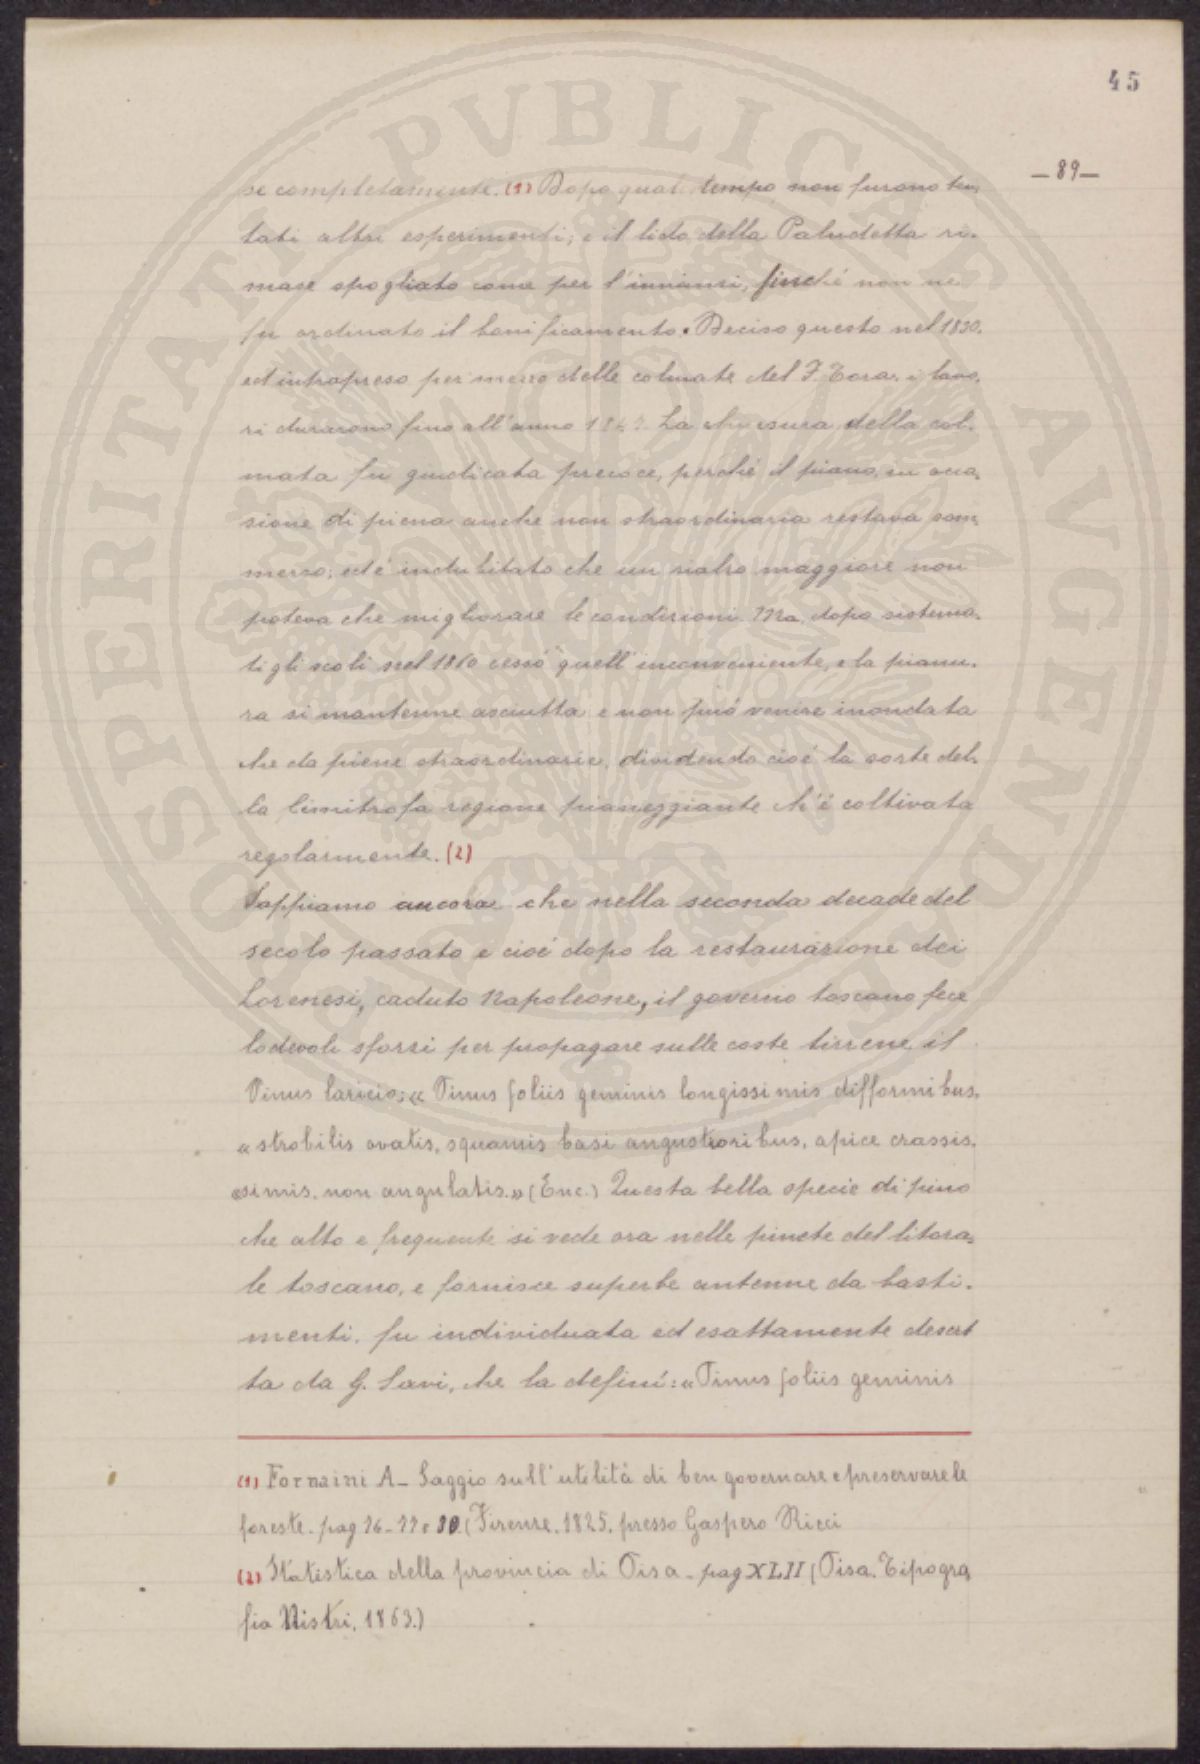 45
—89—
se completamente. (1) Dopo qual tempo non furono ten,
tati altri esperimenti; e il lido della Paludetta ri.
mase spogliato come per l'innanzi, finché non ne
fu ordinato il bonificamento. Deciso questo nel 1830.
ed intrapreso per mezzo delle colmate del F. Tora. i lavo.
ri durarono fino all'anno La chiusura della col.
mata fu giudicata precoce, perché il piano, in occa.
sione di piena anche non straordinaria restava som,
merso; ed é indubitato che un rialzo maggiore non
poteva che migliorare le condizioni. Ma, dopo sistema.
ti gli scoli nel 1860 cessó quell'inconveniente, e la pianu.
ra si mantenne asciutta e non puó venire inondata
che da piene straordinarie, dividendo cioé la sorte del.
la limitrofa regione pianeggiante ch'é coltivata
regolarmente. (2)
Sappiamo ancora che nella seconda decade del
secolo passato e cioé dopo la restaurazione dei
Lorenesi, caduto Napoleone, il governo toscano fece
lodevoli sforzi per propagare sulle coste tirrene il
Pinus laricio: « Pinus foliis geminis longissimis difformibus,
« strobilis ovatis, squamis basi angustioribus, apice crassis.
«simis. non angulatis.» (Enc.) Questa bella specie di pino
che alto e frequente si vede ora nelle pinete del litora,
le toscano, e fornisce superbe antenne da basti.
menti. fu individuata ed esattamente descrit
ta da G. Savi, che la definí: « Pinus foliis geminis
(1) Fornaini A_ Saggio sull'utilità di ben governare e preservare le
foreste_ pag. 26_ 29 e 30. (Firenze. 1825. presso Gaspero Ricci
(2) Statistica della provincia di Pisa_ pag XLII (Pisa. Tipogra
fia Nistri, 1863.)
PROSPERITATI PVBLICAE AVGENDAE